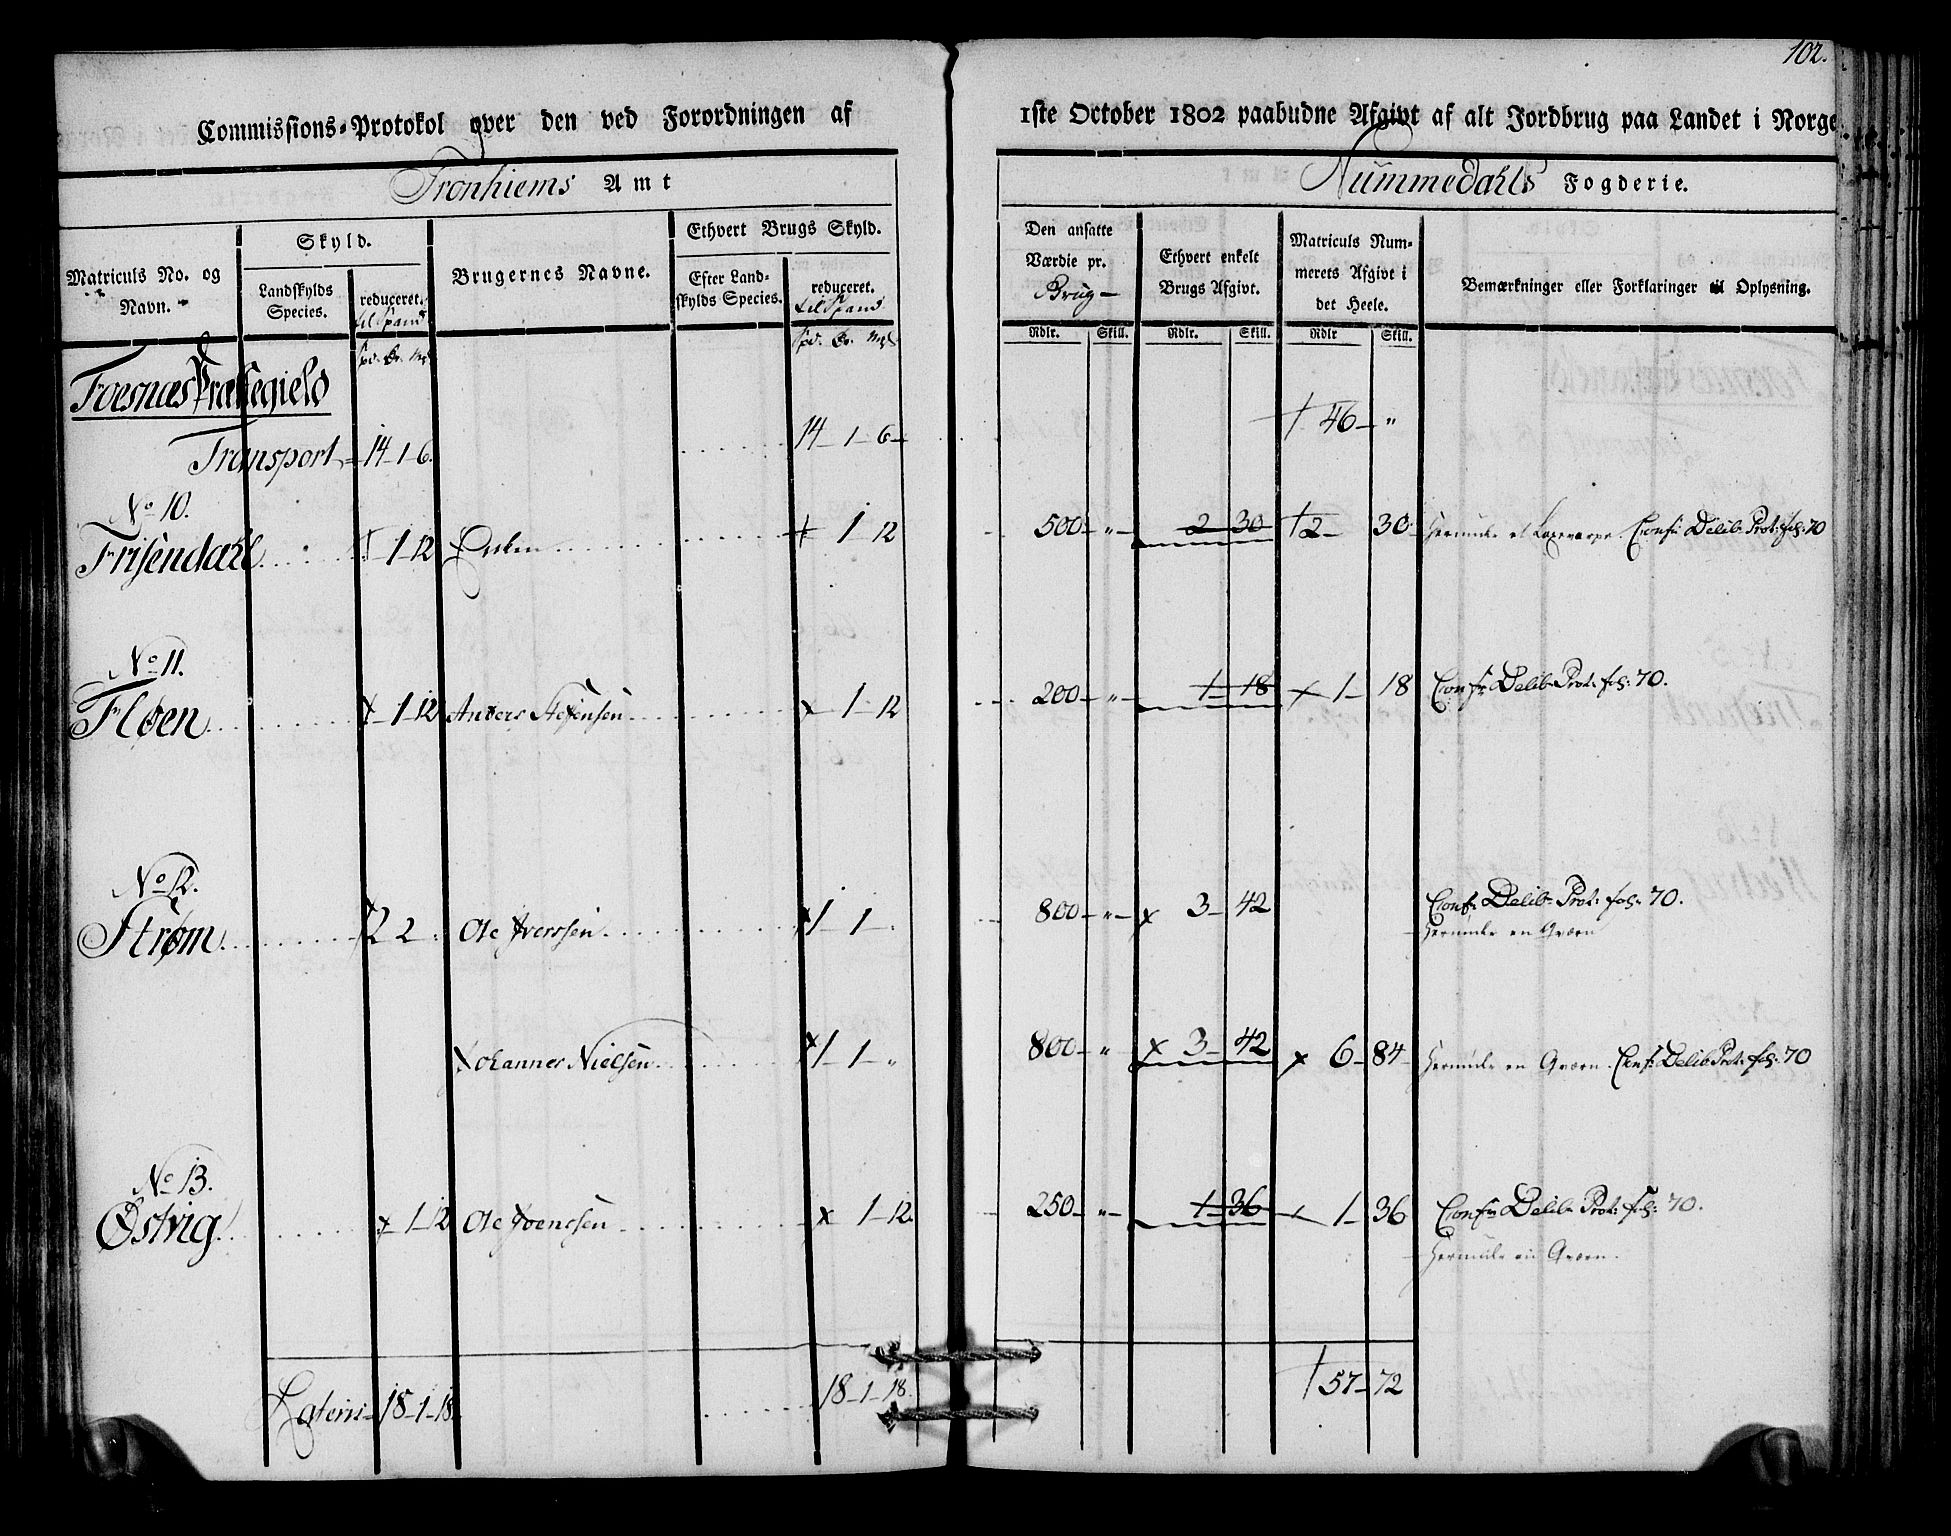 102.
Commissions-Protokol over den ved Forordningen af 1ste October 1802 paabudne Afgivt af alt Jordbrug paa Landet i Norge
Tronhiems Amt
Nummedahls Fogderie.
Matriculs No. og Navn.
Skyld.
Landskylds Species.
reduceret. til Spand
Brugernes Navne.
Ethvert Brugs Skyld.
Efter Landskylds Species.
reduceret. til Spand
Den ansatte Værdie pr. Brug
Ethvert enkelt Brugs Afgivt.
Matriculs Nummerets Afgivt i det Heele.
Bemærkninger eller Forklaringer til Oplysning.
Spd. Ør. Mkl
Spd. Ør. Mkl
Rdlr. Skill. Rdlr. Skill. Rdlr Skill.
Foesnæs Præstegield
Transport 14-1-6. 14-1-6 46 „
No 10.
Frisendahl 1 12 1 12 500 „ 2 30 2 30 Herunder et Laxevarpe Conf: Delib: Prot: fol: 70
No 11.
Fløen 1 12 Anders Stefensen 1 12 200 „ 1 18 1 18 Conf: Delib: Prot: fol: 70.
No 12.
Strøm 2 2 Ole Iverssen 1 1 800 „ 3 42 Conf: Delib: Prot: fol: 70.
Herunder en Qværn
Johannes Nielsen 1 1 „ 800 „ 3 42 6 84 Herunder en Qværn. Conf: Delib: Prot: fol: 70
No 13.
Østvig 1 12 Ole Joenssen 1 12 250 „ 1 36 1 36 Conf: Delib: Prot: fol: 70.
Herunder en Qværn.
Lateris 18-1-18 18-1-18. 57-72